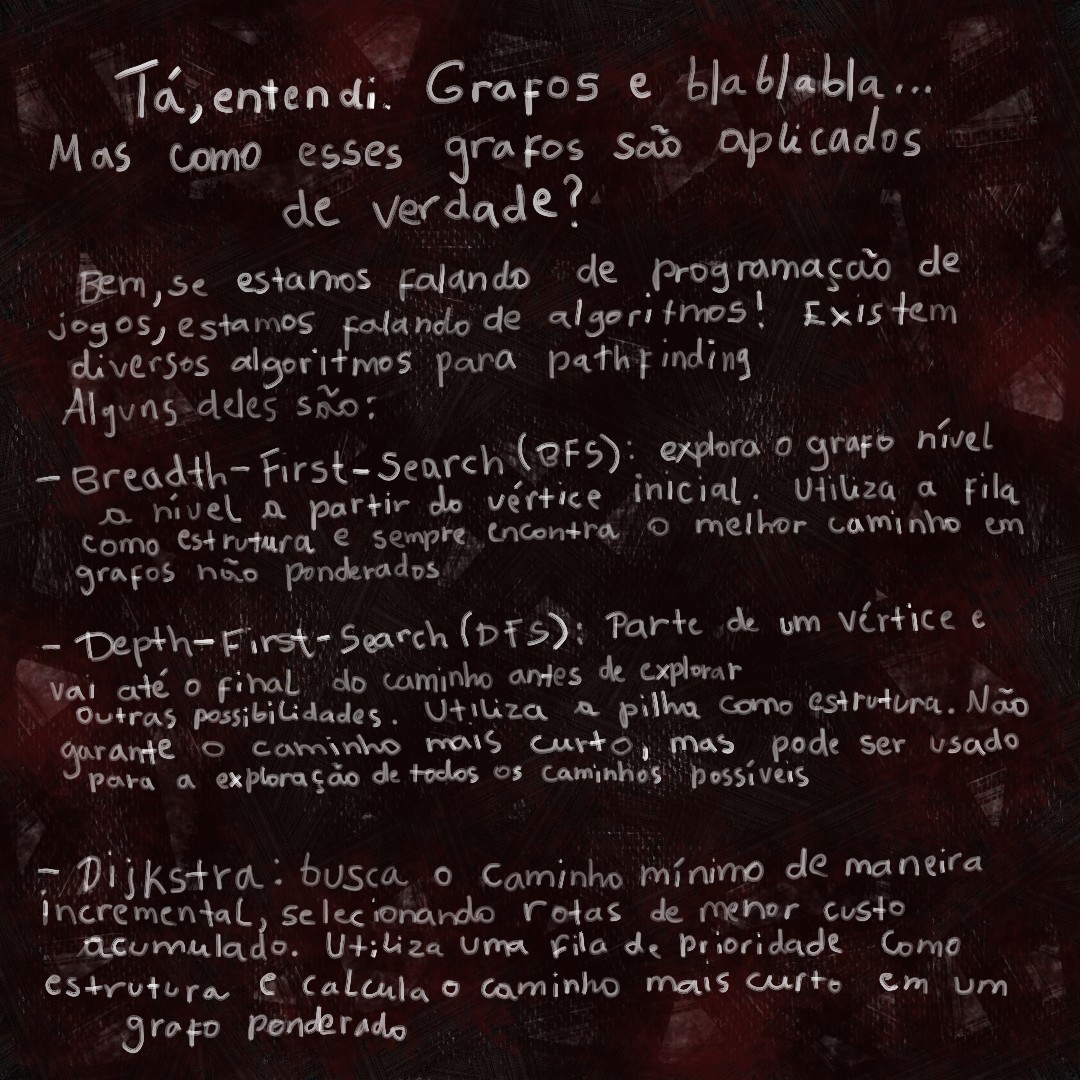 Tá, entendi. Grafos e blablabla...
Mas como esses grafos são aplicados
de verdade?
Bem, se estamos falando de programação de
jogos, estamos falando de algoritmos! Existem
diversos algoritmos para pathfinding
Alguns deles são:
- Breadth-First-Search (BFS): explora o grafo nível
a nível a partir do vértice inicial. Utiliza a fila
como estrutura e sempre encontra o melhor caminho em
grafos não ponderados
- Depth-First-Search (DFS): Parte de um vértice e
vai até o final do caminho antes de explorar
outras possibilidades. Utiliza a pilha como estrutura. Não
garante o caminho mais curto, mas pode ser usado
para a exploração de todos os caminhos possíveis
- Dijkstra: busca o caminho mínimo de maneira
incremental, selecionando rotas de menor custo
acumulado. Utiliza uma fila de prioridade como
estrutura e calcula o caminho mais curto em um
grafo ponderado